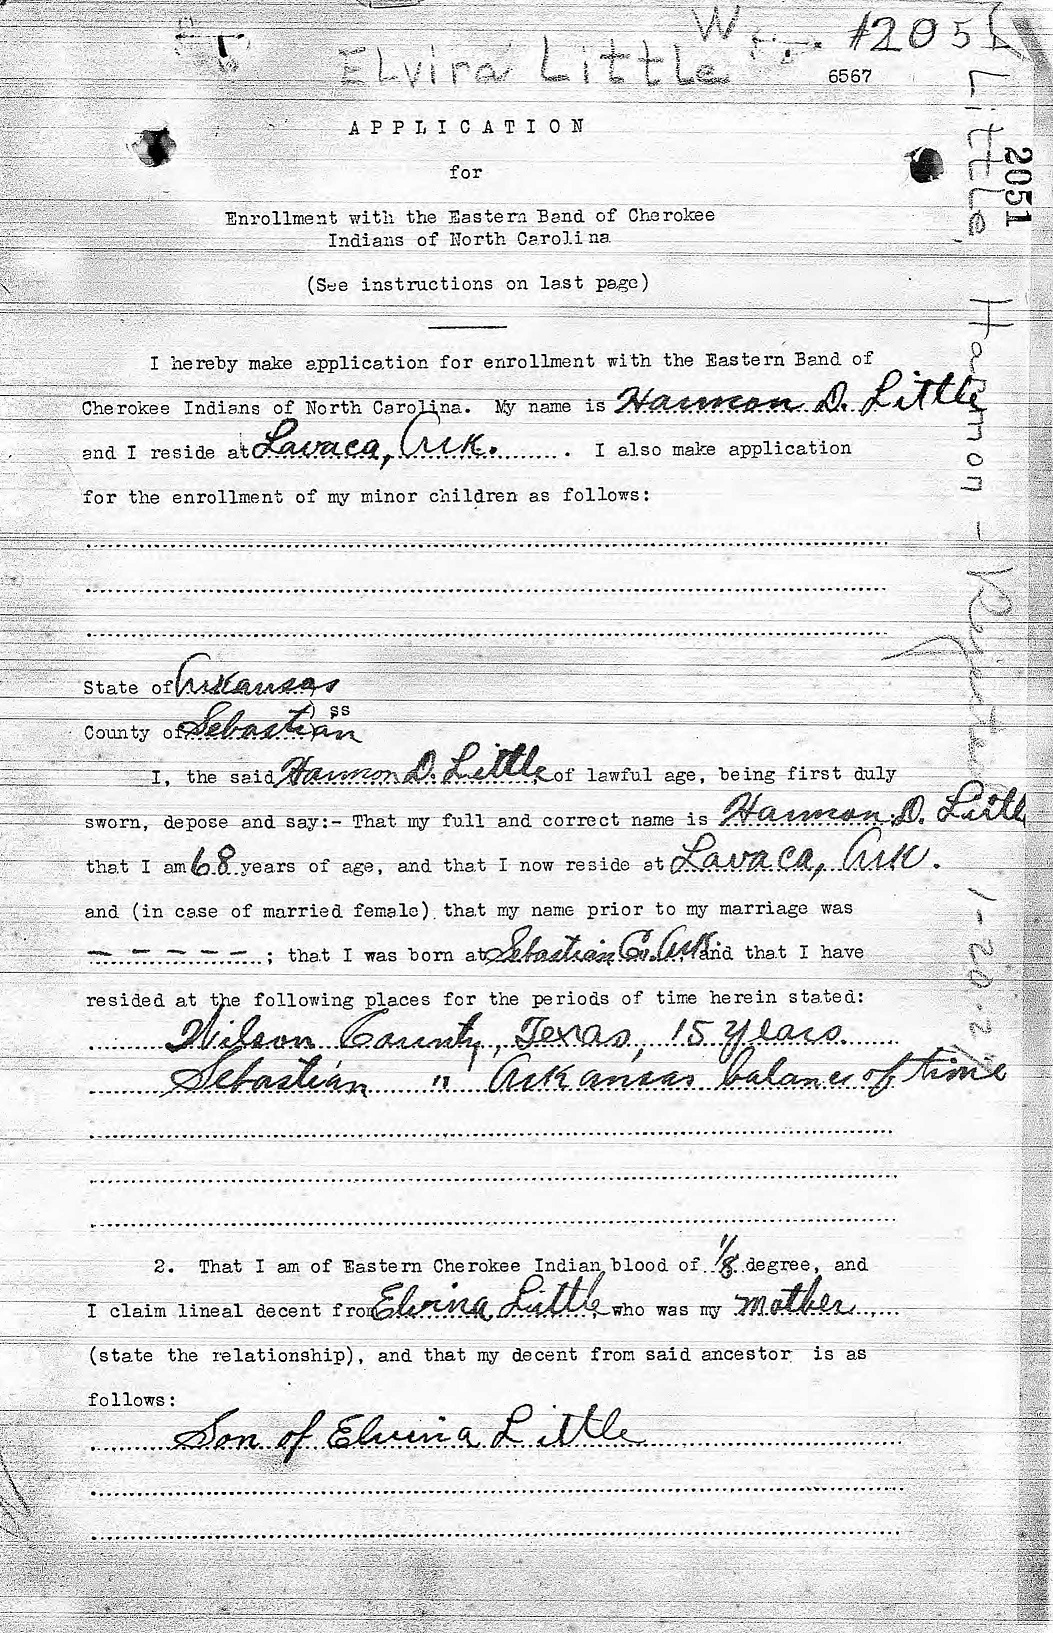 W #2051
Elvira Little
6567
APPLICATION
for
Enrollment with the Eastern Band of Cherokee
Indians of North Carolina
(See instructions on last page)
I hereby make application for enrollment with the Eastern Band of
Cherokee Indians of North Carolina. My name is Harmon D. Little
and I reside at Lavaca, Ark. . I also make application
for the enrollment of my minor children as follows:
State of Arkansas
) ss
County of Sebastian
I, the said Harmon D. Little of lawful age, being first duly
sworn, depose and say:- That my full and correct name is Harmon D. Little
that I am 68 years of age, and that I now reside at Lavaca, Ark.
and (in case of married female) that my name prior to my marriage was
- - - - - - ; that I was born at Sebastian Co. Ark. and that I have
resided at the following places for the periods of time herein stated:
Wilson County, Texas, 15 years.
Sebastian " Arkansas balance of time
2. That I am of Eastern Cherokee Indian blood of 1/8 degree, and
I claim lineal decent from Elvina Little who was my mother
(state the relationship), and that my decent from said ancestor is as
follows:
Son of Elvina Little
2051
Little, Harmon - Rejected 1-20-2